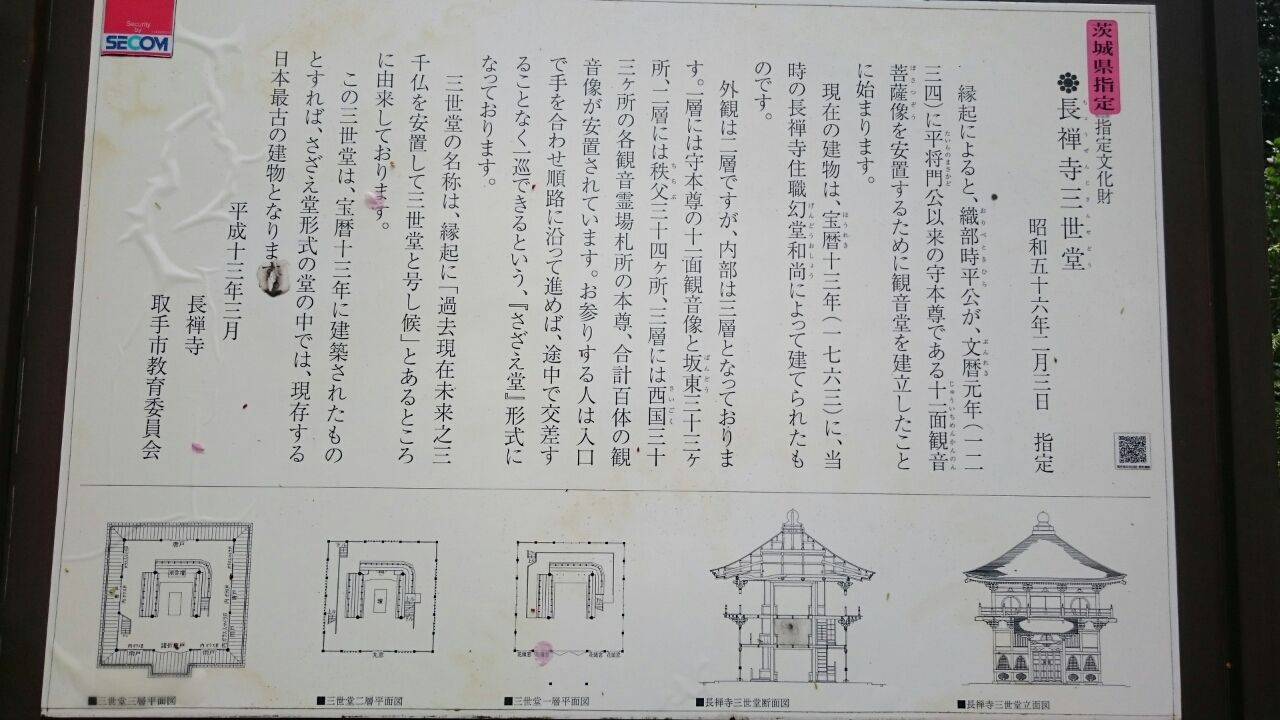 茨城県指定
指定文化財
長禅寺三世堂
ちょうぜんじさんせどう
昭和五十六年二月三日　指定
縁起によると、織部時平公が、文暦元年（一二
三四）に平将門公以来の守本尊である十一面観音
菩薩像を安置するために観音堂を建立したこと
に始まります。
現在の建物は、宝暦十三年（一七六三）に、当
時の長禅寺住職幻堂和尚によって建てられたも
のです。
外観は二層ですが、内部は三層となっておりま
す。一層には守本尊の十一面観音像と坂東三十三ヶ
所、二層には秩父三十四ヶ所、三層には西国三十
三ヶ所の各観音霊場札所の本尊、合計百体の観
音像が安置されています。お参りする人は入口
で手を合わせ順路に沿って進めば、途中で交差す
ることなく一巡できるという、『さざえ堂』形式に
なっております。
三世堂の名称は、縁起に「過去現在未来之三
千仏を安置して三世堂と号し候」とあるところ
に由来しております。
この三世堂は、宝暦十三年に建築されたもの
とすれば、さざえ堂形式の堂の中では、現存する
日本最古の建物となりま
平成十三年三月
長禅寺
取手市教育委員会
Security
by
SECOM
■三世堂三層平面図
■三世堂二層平面図
■三世堂一層平面図
■長禅寺三世堂断面図
■長禅寺三世堂立面図